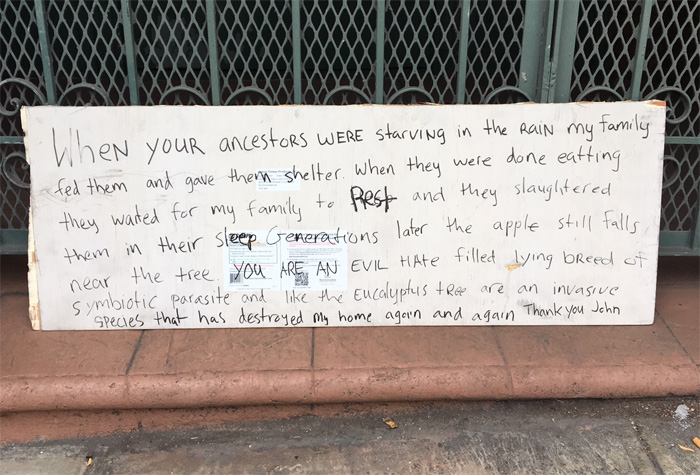 WHEN YOUR ANCESTORS WERE starving in the RAIN my family
fed them and gave them shelter. When they were done eatting
they waited for my family to Rest and they slaughtered
them in their sleep Generations later the apple still falls
near the tree YOU ARE AN EVIL HATE filled lying breed of
symbiotic parasite and like the Eucalyptus tree are an invasive
species that has destroyed my home again and again Thank you John